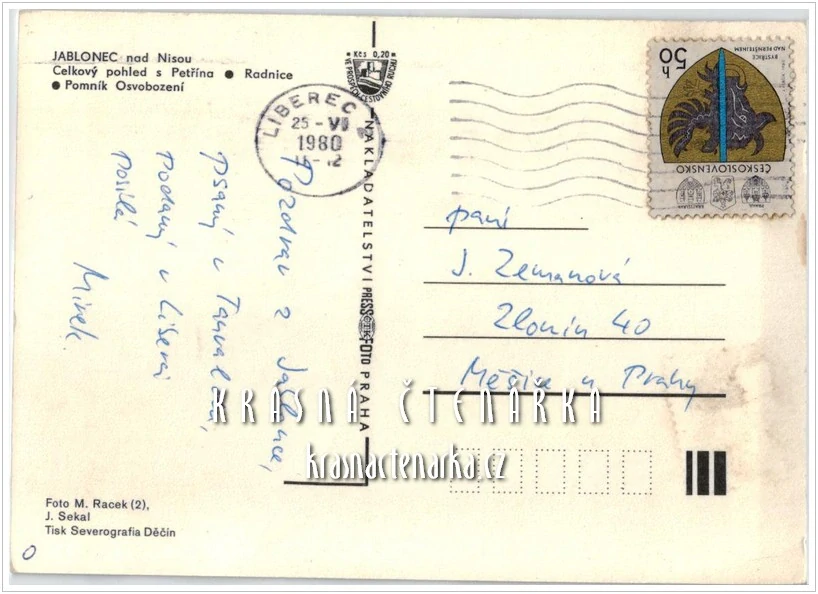 JABLONEC nad Nisou
Celkový pohled s Petřína ● Radnice
● Pomník Osvobození
Kčs 0,20
VE PROSPĚCH CESTOVNÍHO RUCHU
LIBEREC 1
25.-VI
1980
-12
BYSTŘICE
NAD PERNŠTEJNEM
50 h
ČESKOSLOVENSKO
BRATISLAVA
PRAHA
NAKLADATELSTVÍ PRESSFOTO PRAHA
ČTK
Pozdrav z Jablonce,
Psaný v Tanvaldu,
Podaný v Liberci
Posílá
Mirek.
paní
J. Zemanová
Zlonín 40
Měšice u Prahy
KRÁSNÁ ČTENÁŘKA
krasnactenarka.cz
Foto M. Racek (2),
J. Sekal
Tisk Severografia Děčín